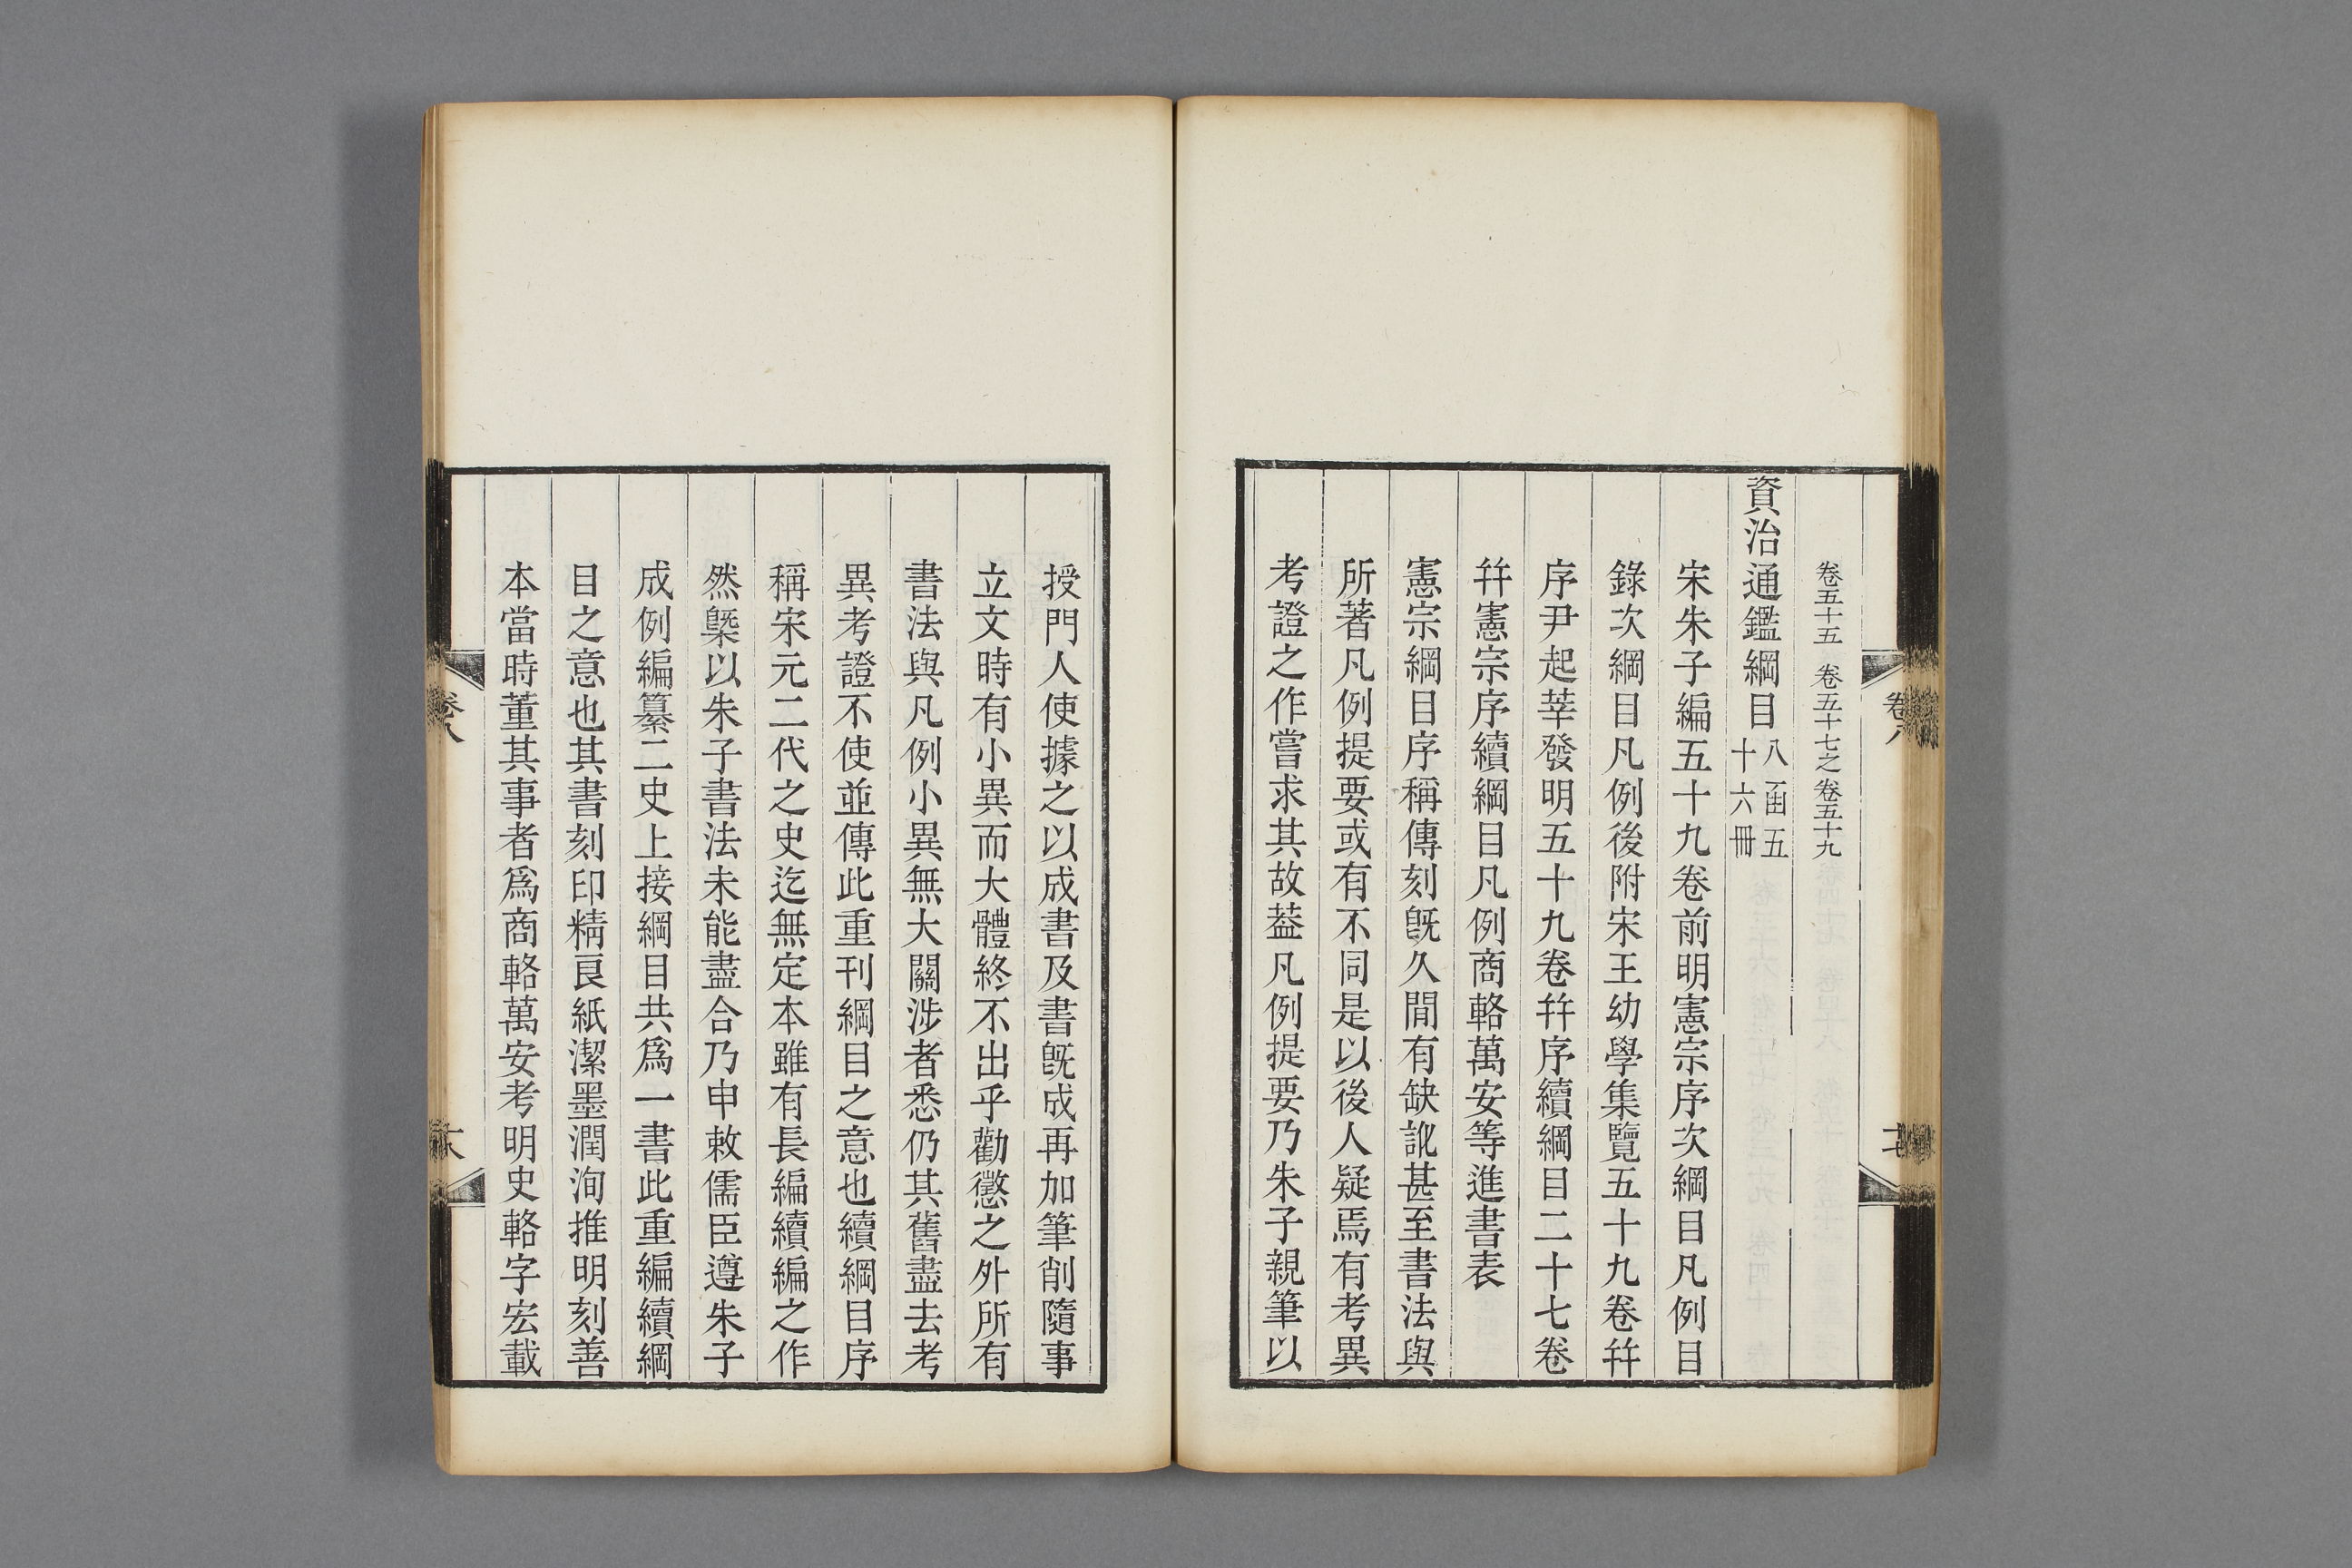 卷五十五　卷五十七之卷五十九
資治通鑑綱目八函五
十六冊
宋朱子編五十九卷前明憲宗序次綱目凡例目
錄次綱目凡例後附宋王幼學集覽五十九卷幷
序尹起莘發明五十九卷幷序續綱目二十七卷
幷憲宗序續綱目凡例商輅萬安等進書表
憲宗綱目序稱傳刻旣久閒有缺訛甚至書法與
所著凡例提要或有不同是以後人疑焉有考異
考證之作嘗求其故葢凡例提要乃朱子親筆以
授門人使據之以成書及書旣成再加筆削隨事
立文時有小異而大體終不出乎勸懲之外所有
書法與凡例小異無大關涉者悉仍其舊盡去考
異考證不使並傳此重刊綱目之意也續綱目序
稱宋元二代之史迄無定本雖有長編續編之作
然槩以朱子書法未能盡合乃申敕儒臣遵朱子
成例編纂二史上接綱目共爲一書此重編續綱
目之意也其書刻印精良紙潔墨潤洵推明刻善
本當時董其事者爲商輅萬安考明史輅字宏載
卷八
卷八